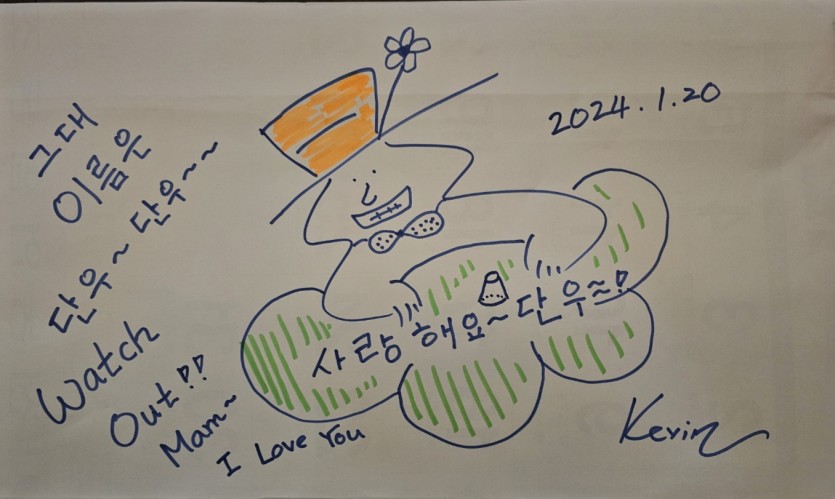 그대
이름은
단우~ 단우~~
Watch
Out!!
Mam~
I Love You
2024.1.20
사랑해요~단우~!
Kevin